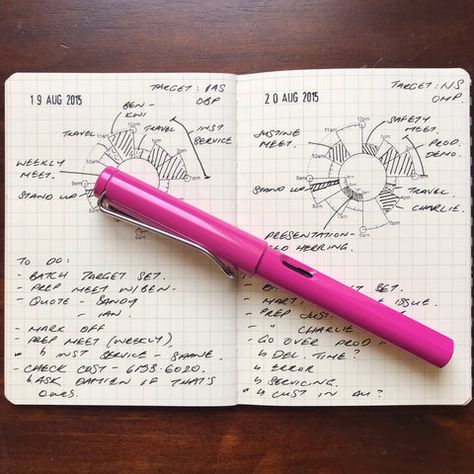 19 AUG 2015
TARGET: IAS
OBP
BEN -
KWI
TRAVEL
TRAVEL
INST
SERVICE
WEEKLY
MEET.
STAND UP
TO DO:
- BATCH TARGET SET.
- PREP MEET W/BEN.
- QUOTE - SANDY
- IAN.
- MARK OFF
- PREP MEET (WEEKLY)
" ↳ INST SERVICE - SHANE.
- CHECK COST - 6193-6020.
↳ ASK DAMIEN IF THAT'S
OURS.
20 AUG 2015
TARGET: NS
OMP.
JUSTINE
MEET.
SAFETY
MEET.
PROD.
DEMO.
STAND UP
TRAVEL
CHARLIE.
PRESENTATION-
HERRING.
SET.
- MART ISSUE.
- PREP JUST.
- " CHARLIE
- GO OVER PROD "
↳ DEL. TIME?
↳ ERROR
↳ SERVICING.
" ↳ CUST IN AU?